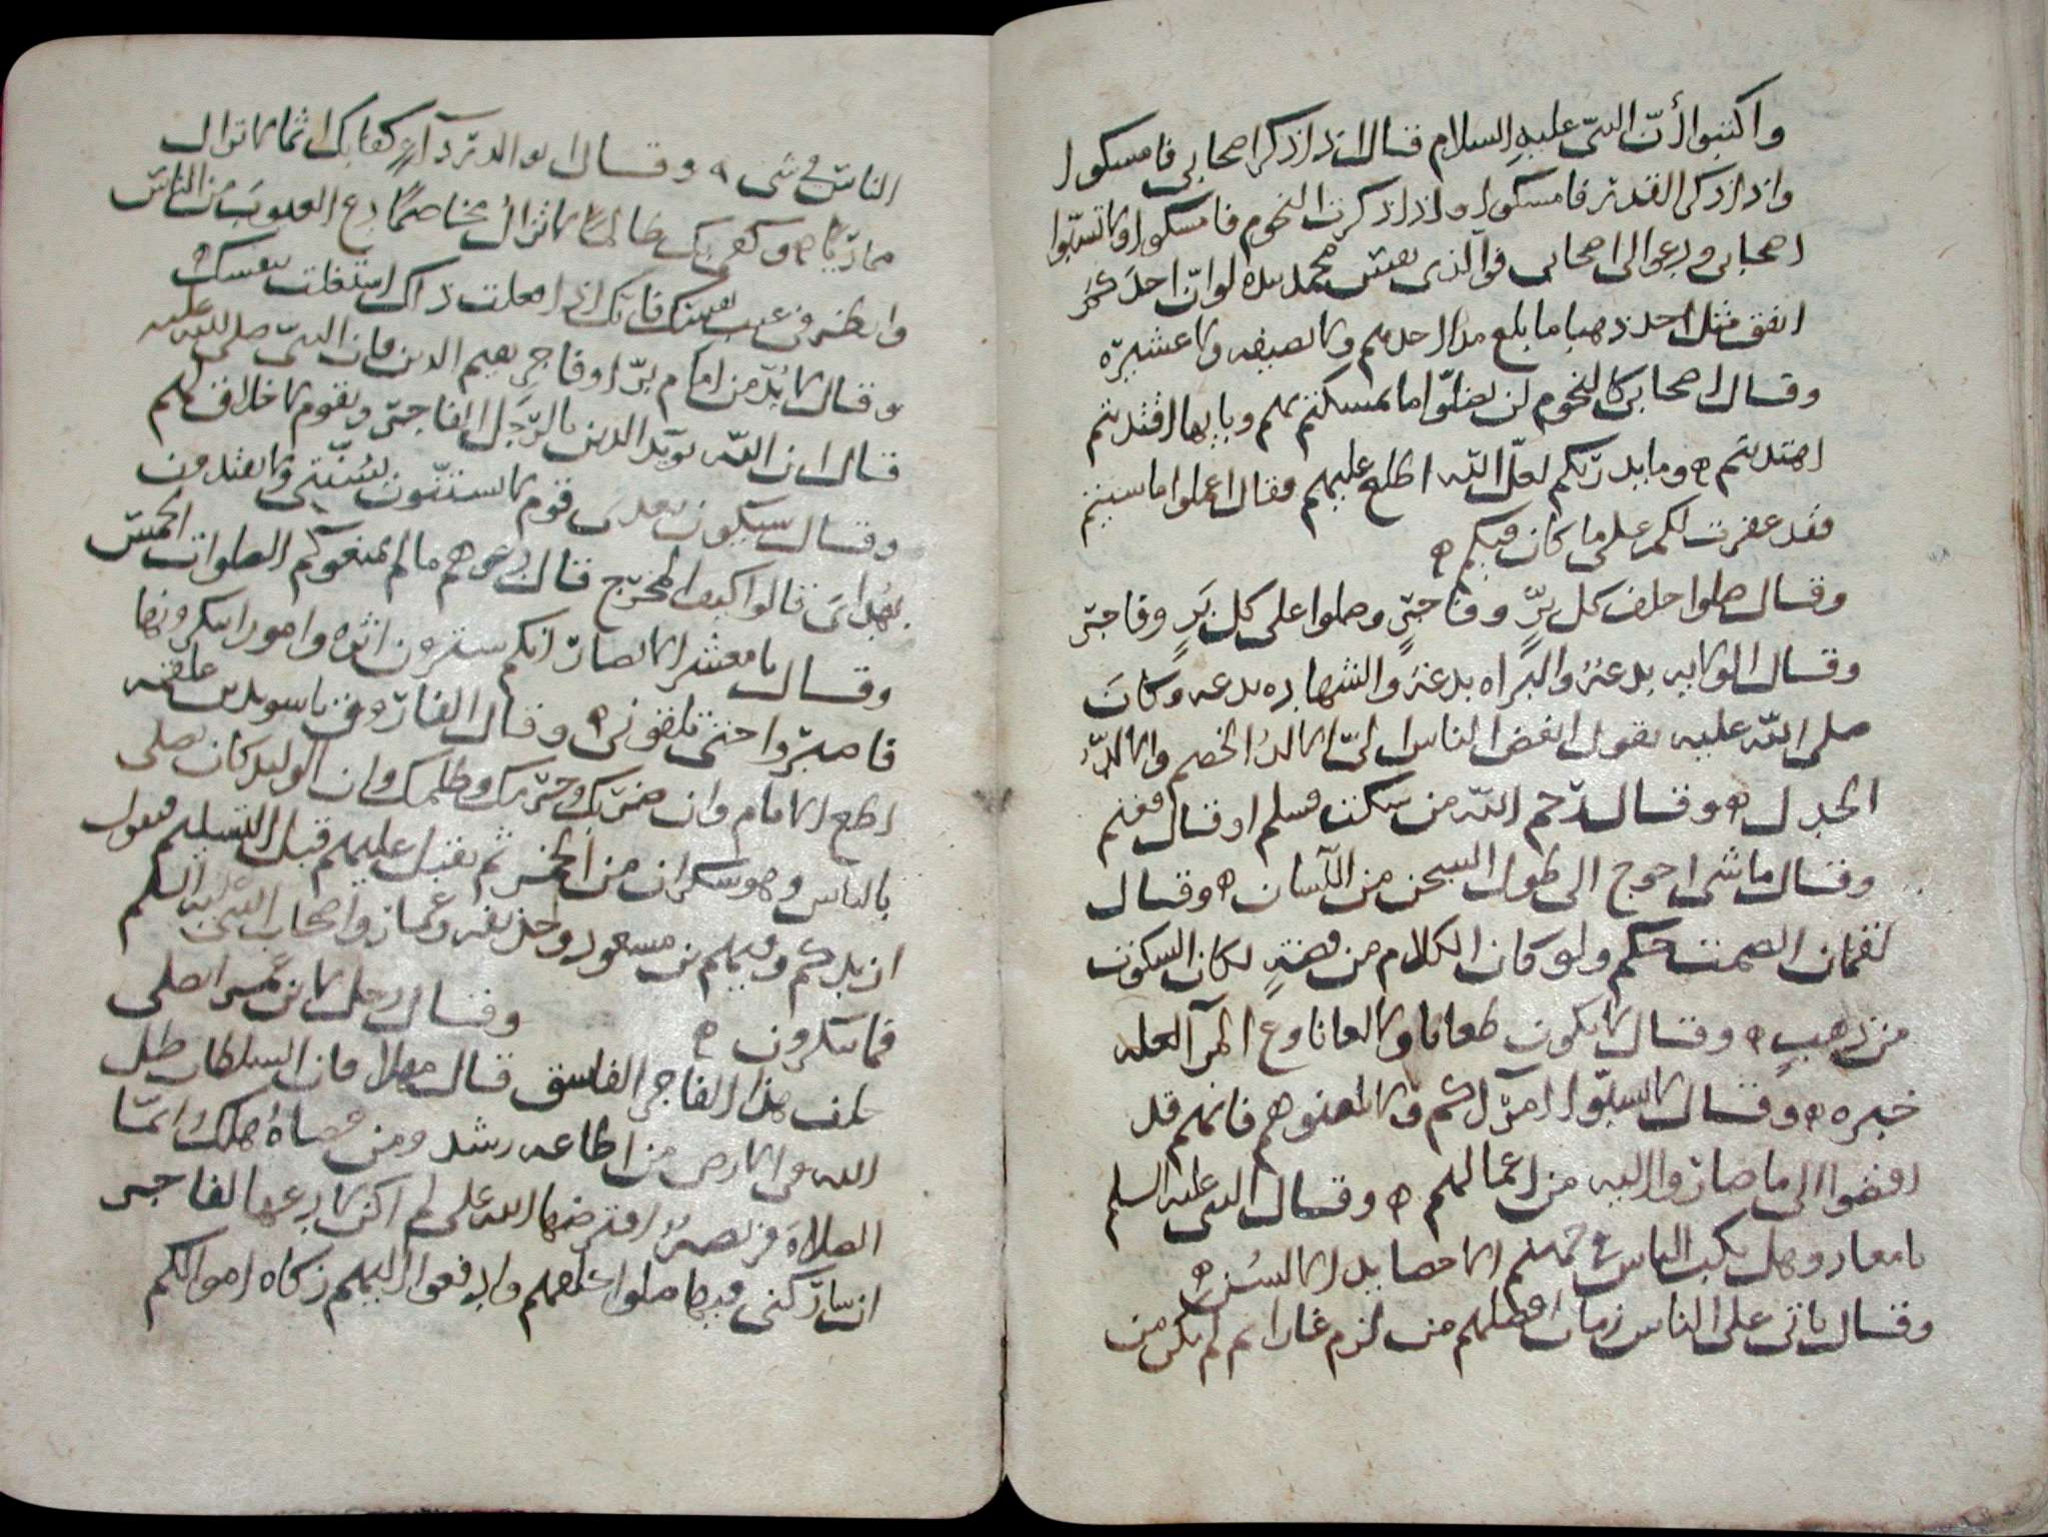 واكتبوا أنّ النبيّ عليه السلام قال اذا ذكر اصحابي فامسكوا
واذا ذكر القدر فامسكوا واذا ذكرت النجوم فامسكوا ولا تسبّوا
اصحابي ودعوا لى اصحابى فوالذى نفس محمد بيده لو انّ احدكم
انفق مثل احد ذهبا ما بلغ مد احدهم ولا نصيفه ولا عشيره
وقال اصحابي كالنجوم لن تضلّوا ما تمسكتم بهم وبايها اقتديتم
اهتديتم ه وما يدريكم لعل الله اطلع عليهم فقال اعملوا ما شيتم
فقد غفرت لكم على ما كان فيكم ه
وقال صلوا خلف كل برٍّ وفاجرٍ وصلوا على كل بَرٍ وفاجر
وقال الولايه بدعة والبراه بدعة والشهاده بدعه وكان
صلى الله عليه يقول ابغض الناس اليّ الالدُ الخصم والالدّ
الجدل ه وقال رحم الله من سكت فسلم او قال فغنم
وقال ما شى احوج الى طول السجن من اللسان ه وقال
لقمان الصمت حكم ولو كان الكلام من فضةٍ لكان السكوت
من ذهبٍ ه وقال لا يكون طعانا ولا لعانا ودع المرآ لعله
خيره ه وقال لا تسبّوا امرآكم ولا تلعنوهم فانهم قد
افضوا الى ما صاروا اليه من اعمالهم ه وقال النبى عليه السلم
يا معاذ وهل يكب الناس في جهنم الا حصايد الالسُن ه
وقال ياتى على الناس زمان افضلهم من لزم غارا ثم لم يكن من
الناس في شى ه وقال ابو الدردآء كفا بك اثما لا تزال
مماريًا ه وكفى بك ظالمًا لا تزال مخاصمًا دع العيوب من الناس
وانظر فى عيب نفسك فانك اذا فعلت ذاك اشتغلت بنفسك
وقال لا بُدّ من امام برّ او فاجر يقيم الدين فان النبيّ صلى الله عليه
قال ان الله يويد الدين بالرّجل الفاجر وبقوم لا خلاق لهم
وقال سيكون بعدى قوم لا يستنّون بسُنّتي ولا يهتدون
بهداىَ قالوا كيف المخرج قال دعوهم ما لم يمنعوكم الصلوات الخمس
وقال يا معشر الانصار انكم سترون اثره وامورا تنكرونها
فاصبروا حتى تلقونى ه وقال الفاروق يا سويد بن علقمه
اطع الامام وان ضربك وحربك وظلمك وان الوليد كان يصلى
بالناس وهو سكران من الخمر ثم يقبل عليهم قبل التسليم فيقول
ازيدكم وفيهم بن مسعود وحذيفه وعمار واصحاب النبي عليه السلم
فما ينكرون ه وقال رجل لابن عمر اصلى
خلف هذا الفاجر الفاسق قال مهلا فان السلطان ظل
الله فى الارض من اطاعه رشد ومن عصاه هلك انما
الصلاة فريضةٌ افترضها الله على لم اكن لا دعها لفاجر
ان شاركنى فيها صلوا خلفهم وادفعوا اليهم زكاه اموالكم